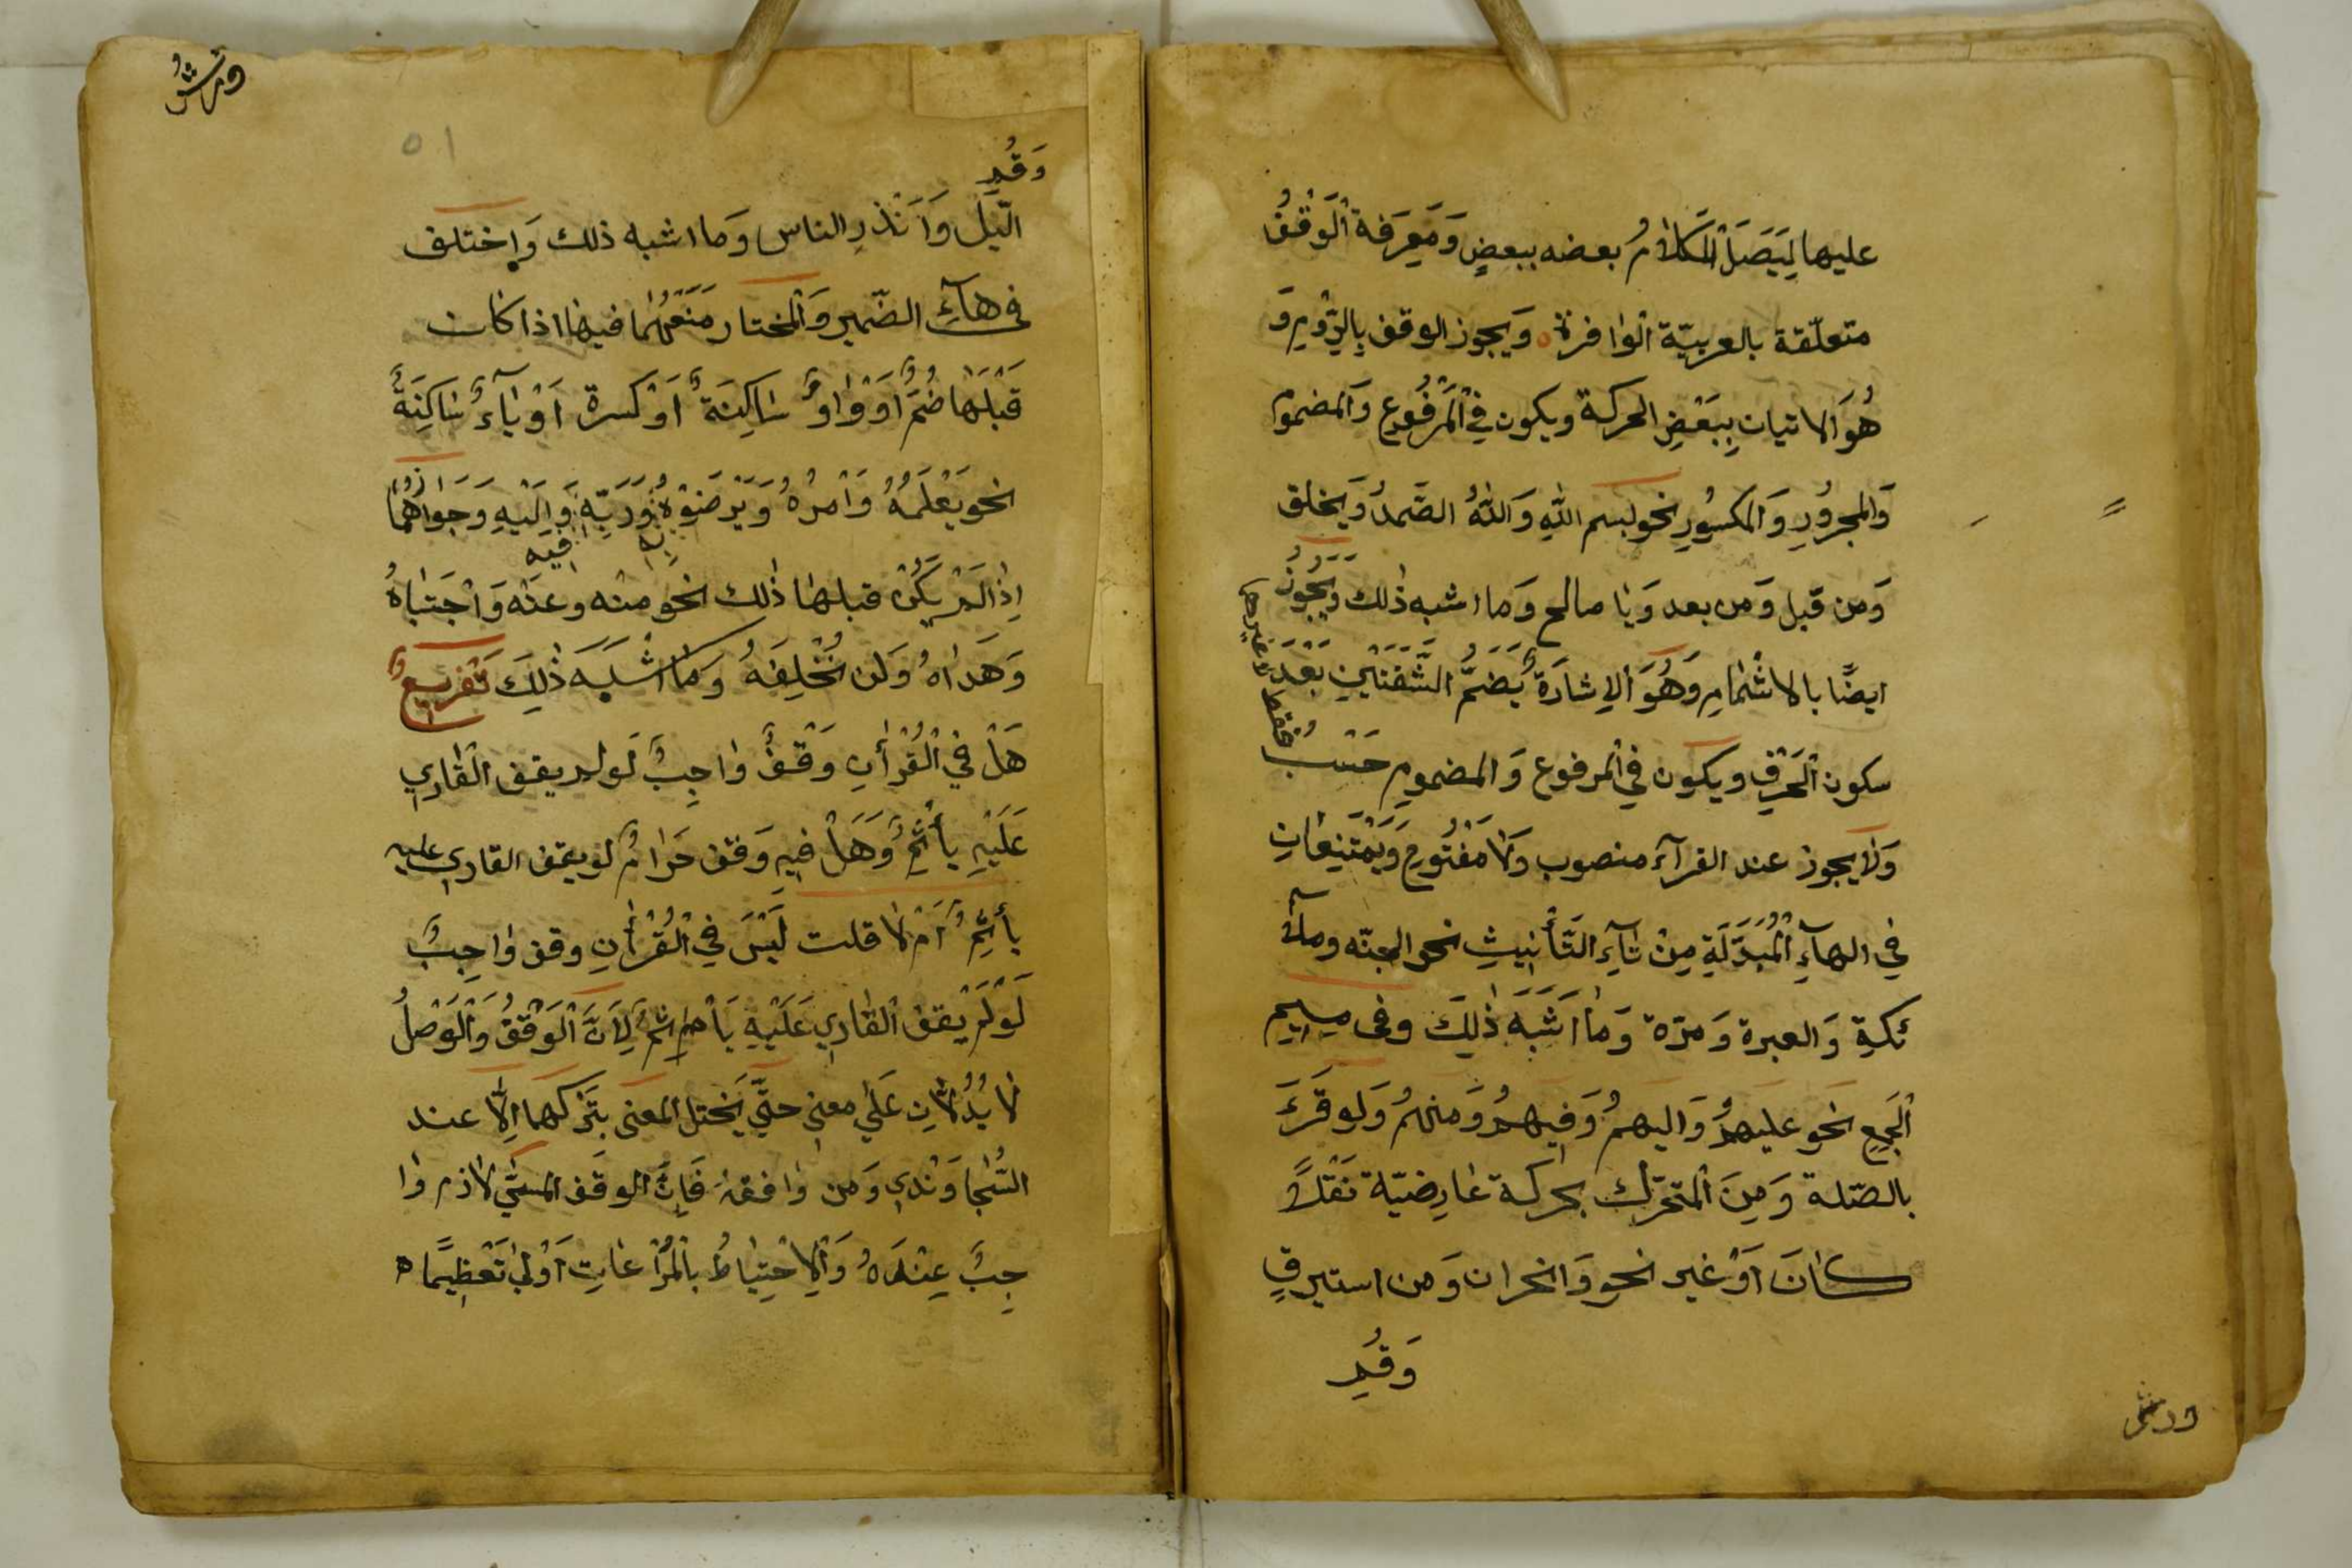 عليها لِيَتَصَلَ الْكَلَامُ بعضه ببعضٍ وَمَعْرَفة الْوَقْفُ
متعلّقة بالعربيّة الوافرة ويجوز الوقف بِالرَّوْمِ وَ
هُوَ الاتيان بِبَعْضِ الحركة ويكون فِي الْمَرْفُوعِ وَالمضموم
وَالمجرُورِ وَالمكسُورِ نحو بسم اللهِ وَاللهُ الصَّمدُ وَيخلق
وَمن قبل وَمن بعد وَيا صالح وَما اشبه ذٰلك وَيَجُوزُ
ايضًا بالاشْمٰامِ وَهُوَ الاِشارَةُ بِضَمِّ الشَّفَتَيْنِ بَعْدَ
سكون الْحَرْفِ ويكون فِي المرفوع وَالمضمومِ حَسْبُ
فقط لا غيرها
وَلَا يجوز عند القرآء منصوب وَلَا مَفْتُوحٍ وَيَمْتَنِعَانِ
في الهآءِ الْمُبْدَلَةِ مِنْ تآءِ التَّأْنِيثِ نحو الجنّه وملآ
ئكة وَالعبرة وَمرّة وَمٰا اَشْبَهَ ذٰلِكَ وفى ميم
الْجَمعِ نحو عليهمُ وَاليهمُ وَفِيهمُ وَمنهمُ وَلو قَرَءَ
بالصّلة وَمِنَ المتحرّك بحركة عٰارِضيّة نَقْلًا
كٰانَ اَوْ غير نحو وَانحران وَمن استبرقٍ
وَقُمِ
ورش
ورشُ
٥١
وَقُمِ
الّيْلَ وَاَنْذرِ الناس وَما اشبه ذلك وَاختلف
فى هآءِ الضّمير وَالمختار مَنْعُهُمٰا فيها اذا كان
قَبْلَهٰا ضمٌّ اَوْ وٰاوٌ سٰاكِنَةٌ اَوْ كسرة اَوْ يآءٌ سٰاكِنَةٌ
نحو يَعْلَمُهُ وَاَمْرُهُ وَيَرْضَوْهُ وَرَبِّهِ وَاِلَيْهِ وَجَوَازُهُمٰا
بِه فيه
اِذٰا لَمْ يَكُنْ قبلهٰا ذٰلك نحو منْه وعنْه وَاجْتَبٰاهُ
وَهَدٰاهُ وَلن تُخْلِفَهُ وَمٰا اَشْبَهَ ذٰلِكَ تَفْرِيعٌ
هَلْ فِي الْقُرْأٰنِ وَقْفٌ وٰاجِبٌ لَو لم يقف الْقٰارِي
عَلَيْهِ يأثَمُ وَهَلْ فيهِ وَقف حَرٰامٌ لو يقف القاري عليه
يأثمُ اَمْ لٰا قلت لَيْسَ فِي الْقُرْأٰنِ وقف وٰاجِبٌ
لَوْ لَمْ يقف الْقٰارِي عَلَيْهِ يَأثمُ لِاَنَّ الْوَقْفُ وَالْوَصْلُ
لٰا يَدُلّٰانِ عَلٰي معنى حتّٰي يَختل المعنى بتَرْكهما اِلّٰا عند
السَّجٰاوَنْدي وَمن وٰافقهُ فَاِنَّ الوقف المسَمّٰي لٰازم وٰا
جِبٌ عِنْدَهُ وَالْاِحْتِيٰاطُ بِالْمُرٰاعٰاتِ اَوْلٰي تَعْظِيمًا